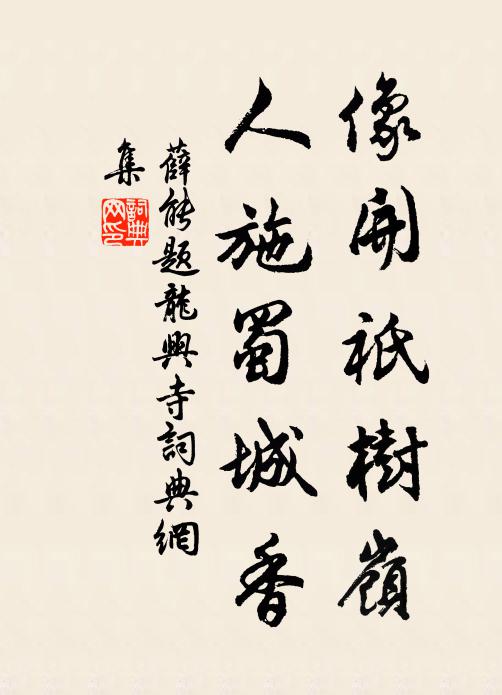 像開祇樹嶺
人施蜀城香
薛能題龍興寺詞典網
集
詞典
网印